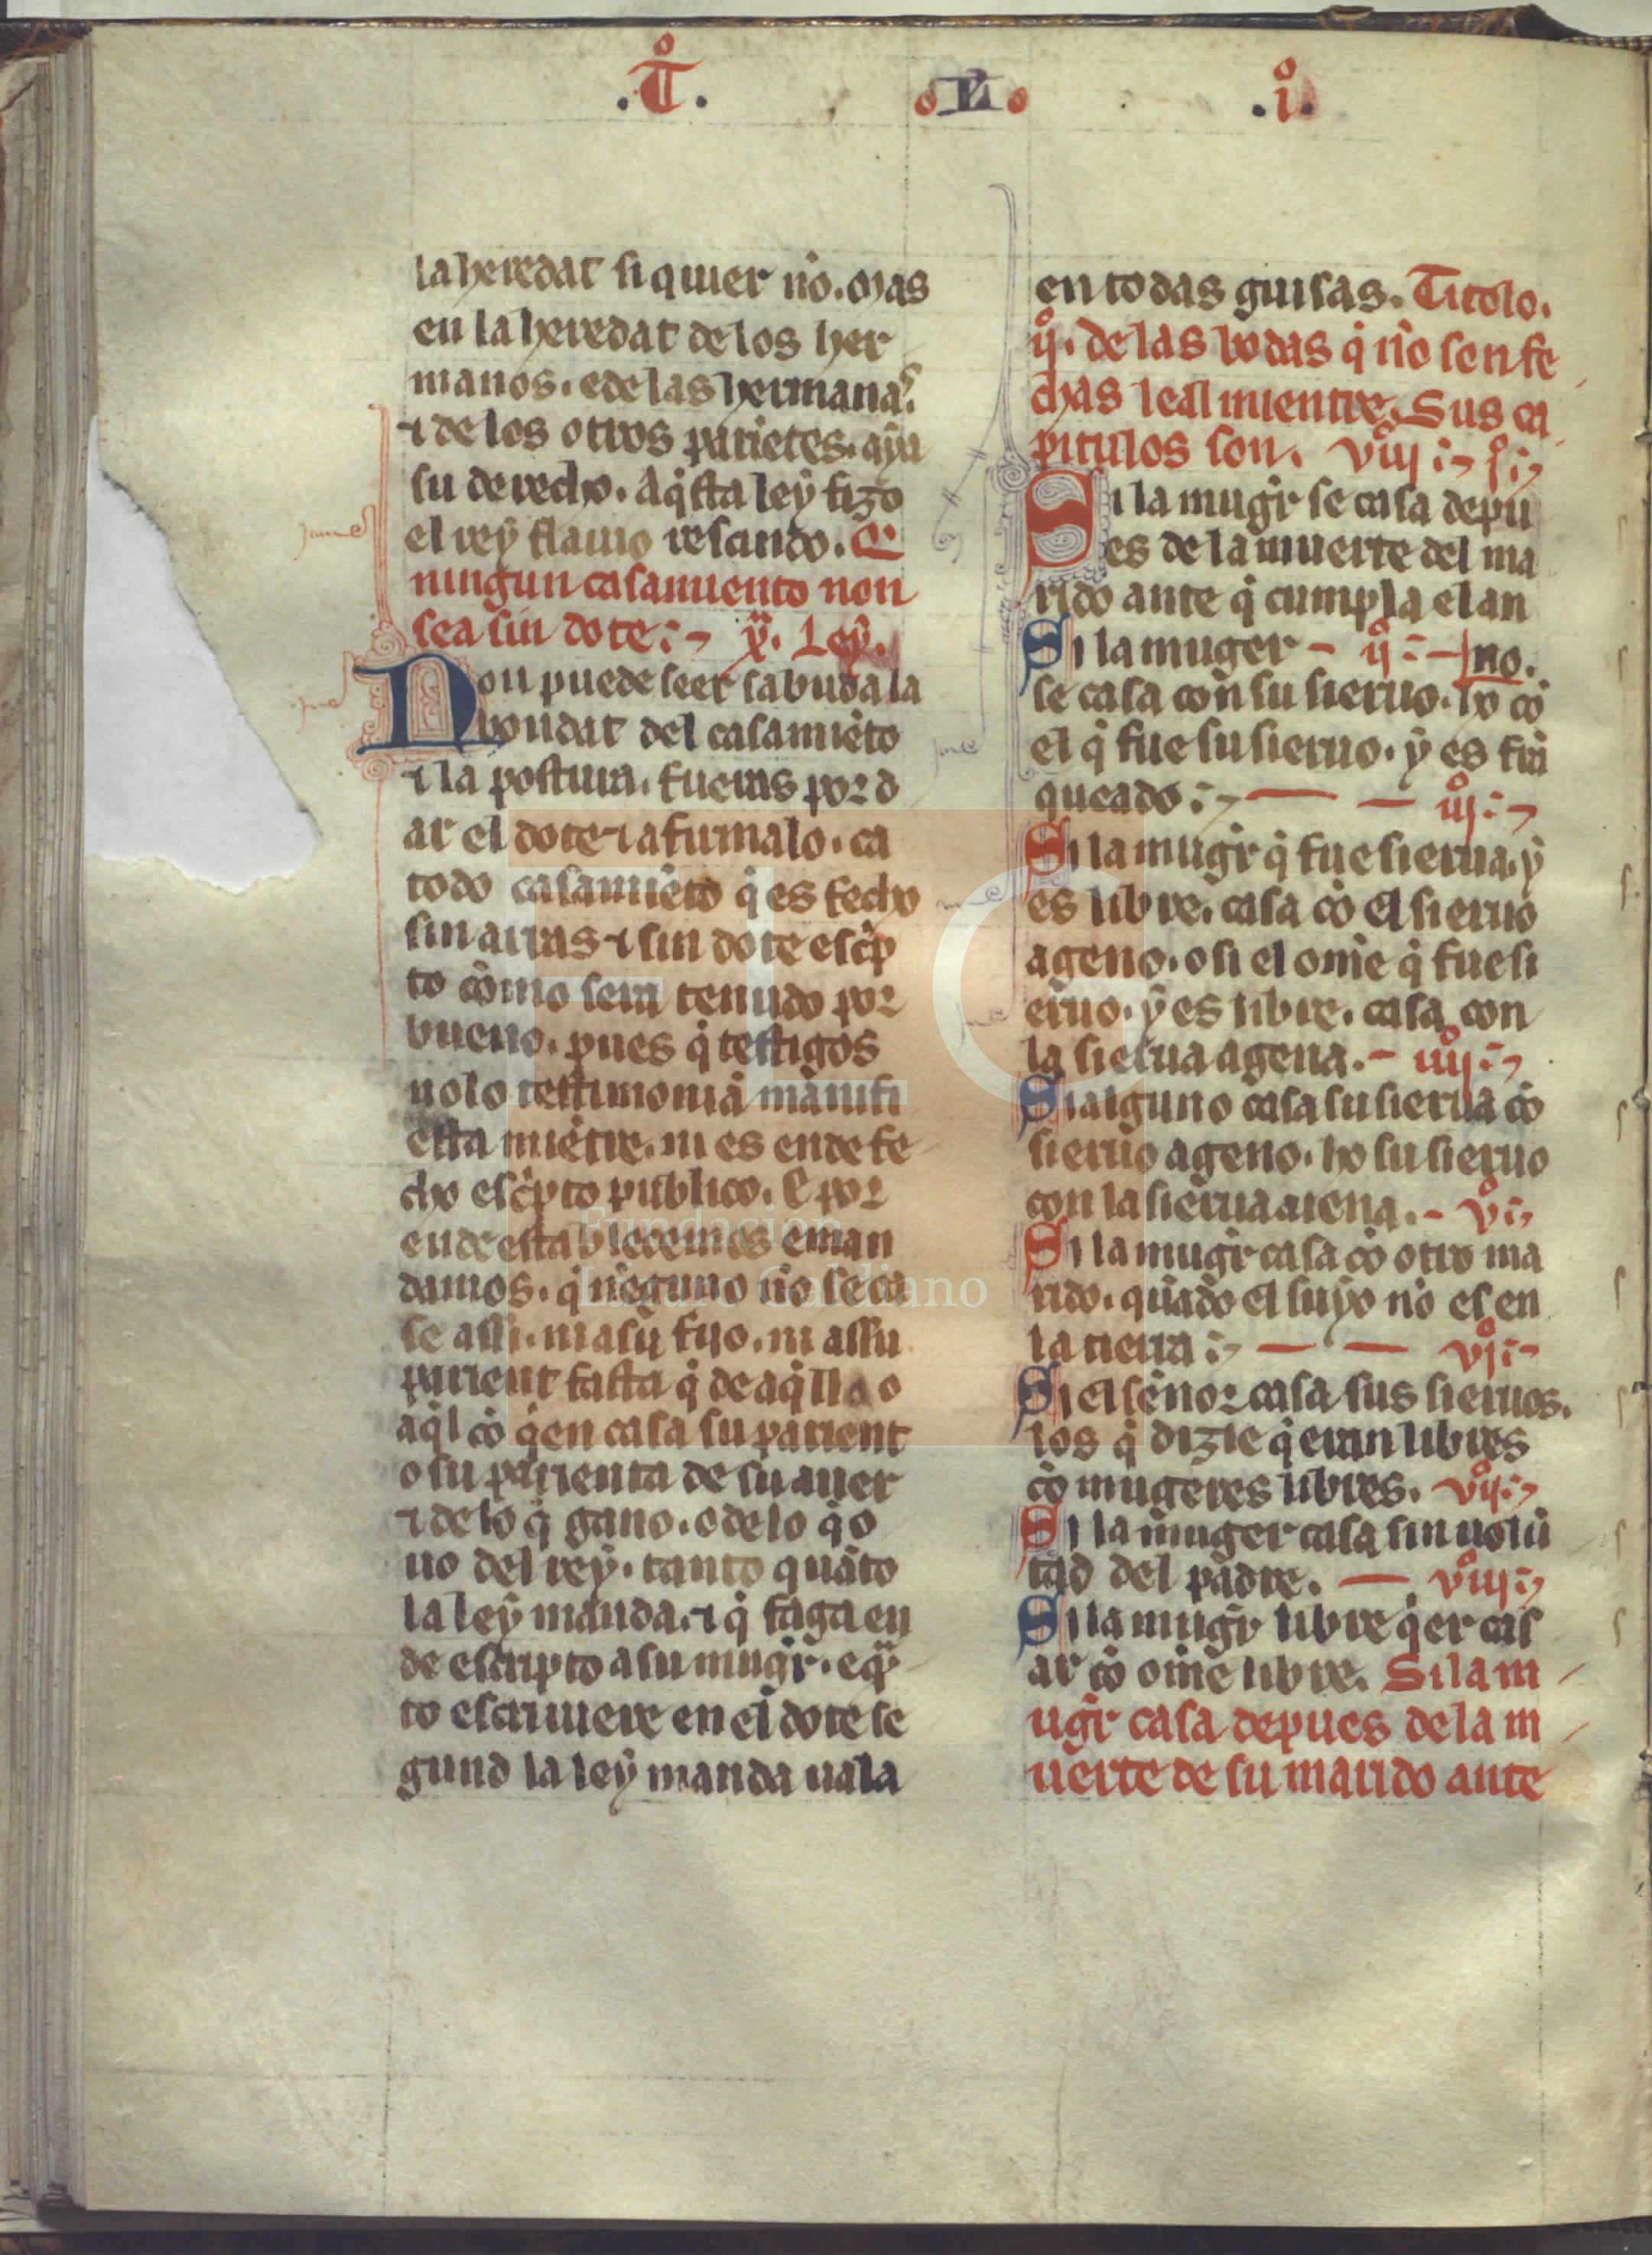 .T̊. .N. .i̊.
la heredat si quier nõ. mas
en la heredat de los her
manos. e de las hermanas.
⁊ de los otros pariẽtes. aya
su derecho. Aq̃sta ley fizo
el rey flauio resciundo. Q̃
ningun casamiento non
sea sin dote :~ x̊. Ley.
Non puede seer sabuda la
bondat del casamiẽto
⁊ la postura. fueras por d
ar el dote ⁊ afirmalo. ca
todo casamiẽto q̃ es fecho
sin arras ⁊ sin dote esc̃p
to cõmo sera tenudo por
bueno. pues q̃ testigos
nolo testimoniã mãnifi
esta miẽtre. ni es ende fe
cho esc̃pto publico. E por
ende establecemos e man
damos. q̃ nẽguno nõ se ca
se assi. ni a su fijo. ni assu
parient fasta q̃ de aq̃lla o
aq̃l cõ q̃en casa su parient
o su parienta de su auer
⁊ delo q̃ gano. o delo q̃ o
uo del rey. tanto quãto
la ley manda. ⁊ q̃ faga en
de escripto a su mugr̃. e q̃
to escriuiere en el dote se
gund la ley manda uala
en todas guisas. Titolo.
ij̊. de las bodas q̃ nõ son fe
chas leal mientre. Sus ca
pitulos son. viiij̊ :~ i̊ :~
Si la mugr̃ se casa depu
es de la muerte del ma
rido ante q̃ cumpla el an
Si la muger - ij̊ :- no.
se casa con su sieruo. ho cõ
el q̃ fue su sieruo. y es frã
queado :~ — — iij̊ :~
Si la mugr̃ q̃ fue sierua. y
es libre. casa cõ el sieruo
ageno. o si el omẽ q̃ fue si
eruo. y es libre. casa con
la sierua agena. - iiij̊ :~
Si alguno casa su sierua cõ
sieruo ageno. ho su sieruo
con la sierua aiena. - v̊ :~
Si la mugr̃ casa cõ otro ma
rido. quãdo el suyo nõ es en
la tierra :~ — — vj̊ :~
Si el sẽnor casa sus sieruos.
los q̃ dizie q̃ eran libres
cõ mugeres libres. vij̊ :~
Si la muger casa sin uolũ
tad del padre. — viij̊ :~
Si la mugr̃ libre q̃er cas
ar cõ omẽ libre. Si la m
ugr̃ casa depues de la m
uerte de su marido ante
Fundación
Lázaro Galdiano